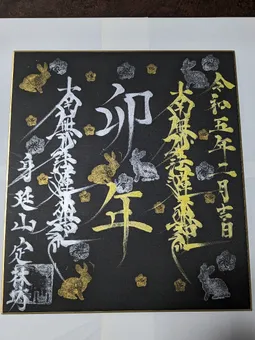 令和五年二月吉日
南無妙法蓮華経
卯年
南無妙法蓮華経
身延山定林坊